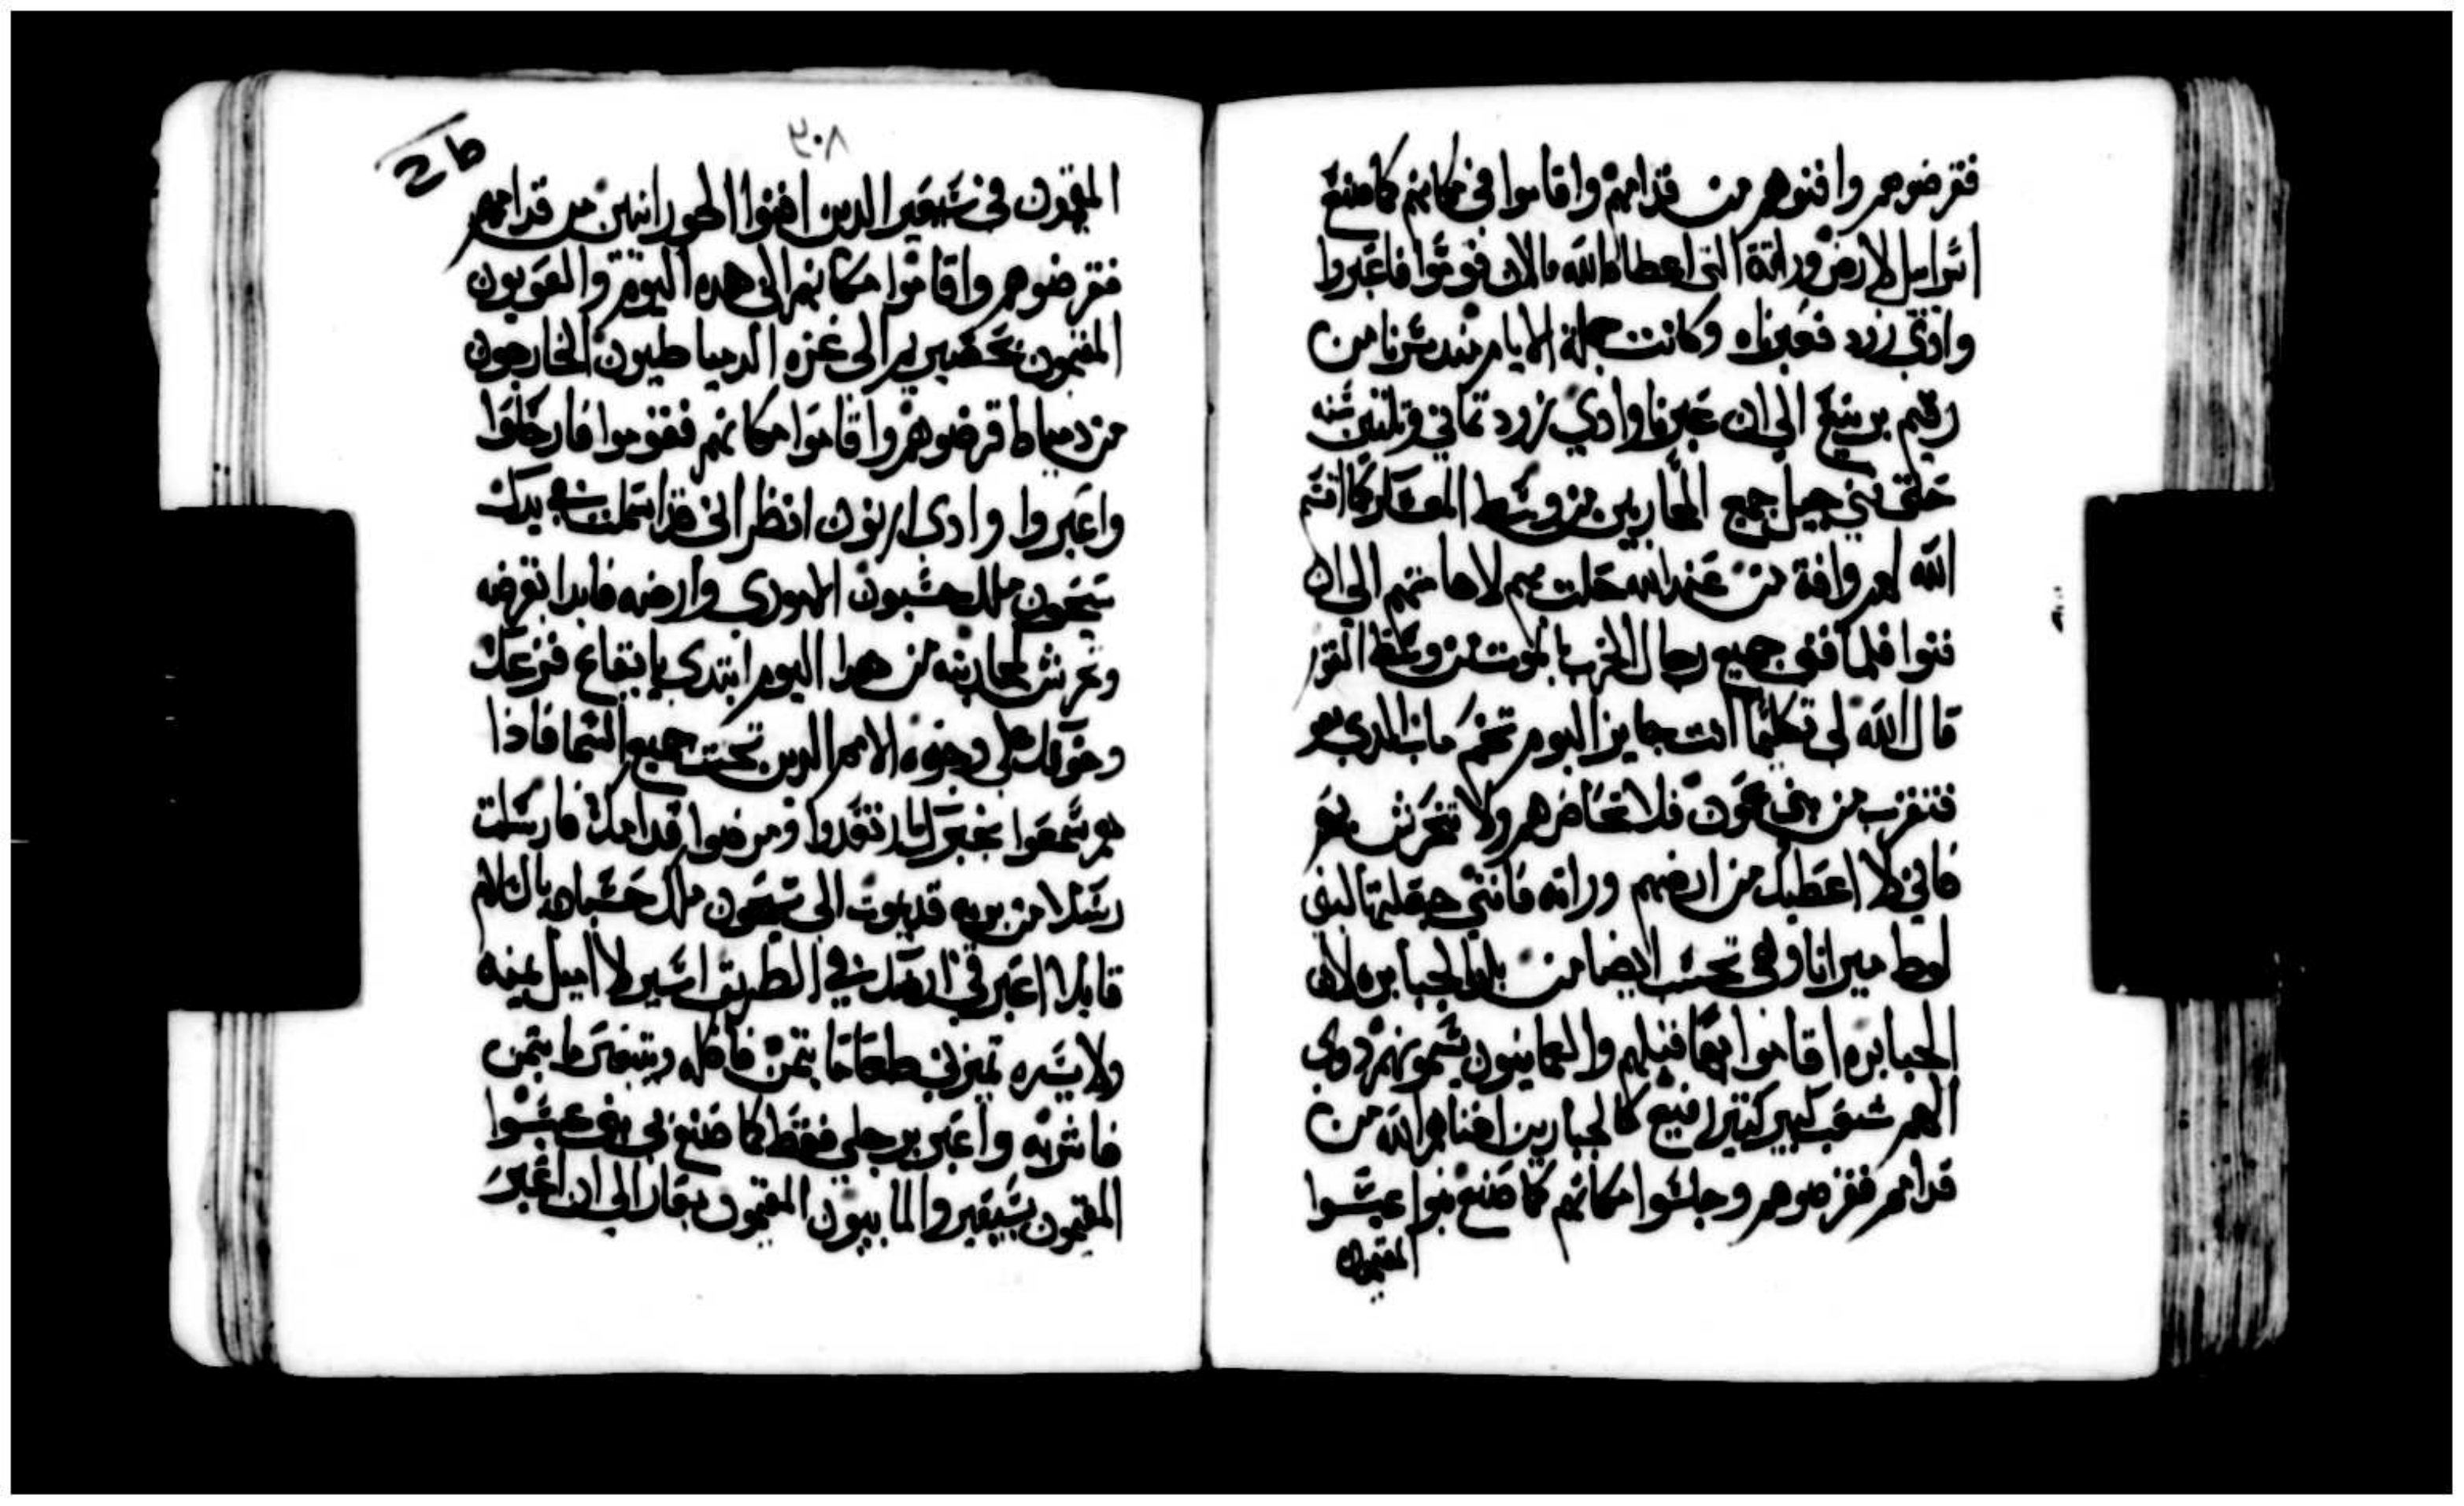 فقرضوهم وافنوهم من قدامهم واقاموا في مكانهم كما صنع
اسرايل لارض وراثة التي اعطاها الله مالان قوموا فاعبروا
وادي زرد فعبرناه وكانت جملة الايام منذ سرنا من
رقيم برنيع الي ان عبرنا وادي زرد تماني وتلتين سنه
حتى فني جيل جميع المحاربين من وسط المعسكر كما اقسم
الله لهم وافة من عند الله حلت بهم لاهامتهم الي ان
فنوا فلما فني جميع رجال الحرب بالموت من وسط القوم
قال الله لي تكليما انت جايز اليوم تخم ماب الدي هو
فتقرب من بني عمون فلا تحاصرهم ولا تتحرش بهم
فاني لا اعطيك من ارضهم وراته فانني جعلتها لبني
لوط ميراتا وهي تحسب ايضا من بلد الجبابره لان
الجبابره اقاموا بها قبلهم والعمانيون يسمونهم دوي
الهمم شعب كبير كتير رفيع كالجبارين افناهم الله من
قدامهم فقرضوهم وجلسوا مكانهم كما صنع بنوا عيسوا
المقيمون
٨٠٦
2b
المقيمون في سيعير الدين افنوا الحورانيين من قدامهم
فقرضوهم واقاموا مكانهم الى هده اليوم والعويون
المقيمون بحصيريم الى غزه الدمياطيون الخارجون
من دمياط قرضوهم واقاموا مكانهم فقوموا فارحلوا
واعبروا وادي ارنون انظر اني قد اسلمت في يدك
سيحون ملك حشبون الاموري وارضه فابدا بقرضه
وتحرش لمحاربته من هدا اليوم ابتدي بايقاع فزعك
وخوفك على وجوه الامم الدين تحت جميع السما فادا
هم سمعوا بخبرك ارتعدوا ومرضوا قدامك فارسلت
رسلا من بريه قديموت الى سيحون ملك حسبان بالسلام
قايلا اعبر في ارضك في الطريق اسير لا اميل يمينه
ولا يسره تميرني طعاما بتمن فاكله وتبيعني ما بتمن
فاشربه واعبر برجلي فقط كما صنع بي بني عيسوا
المقيمون بسيعير والمابيون المقيمون بعار الي ان اعبر